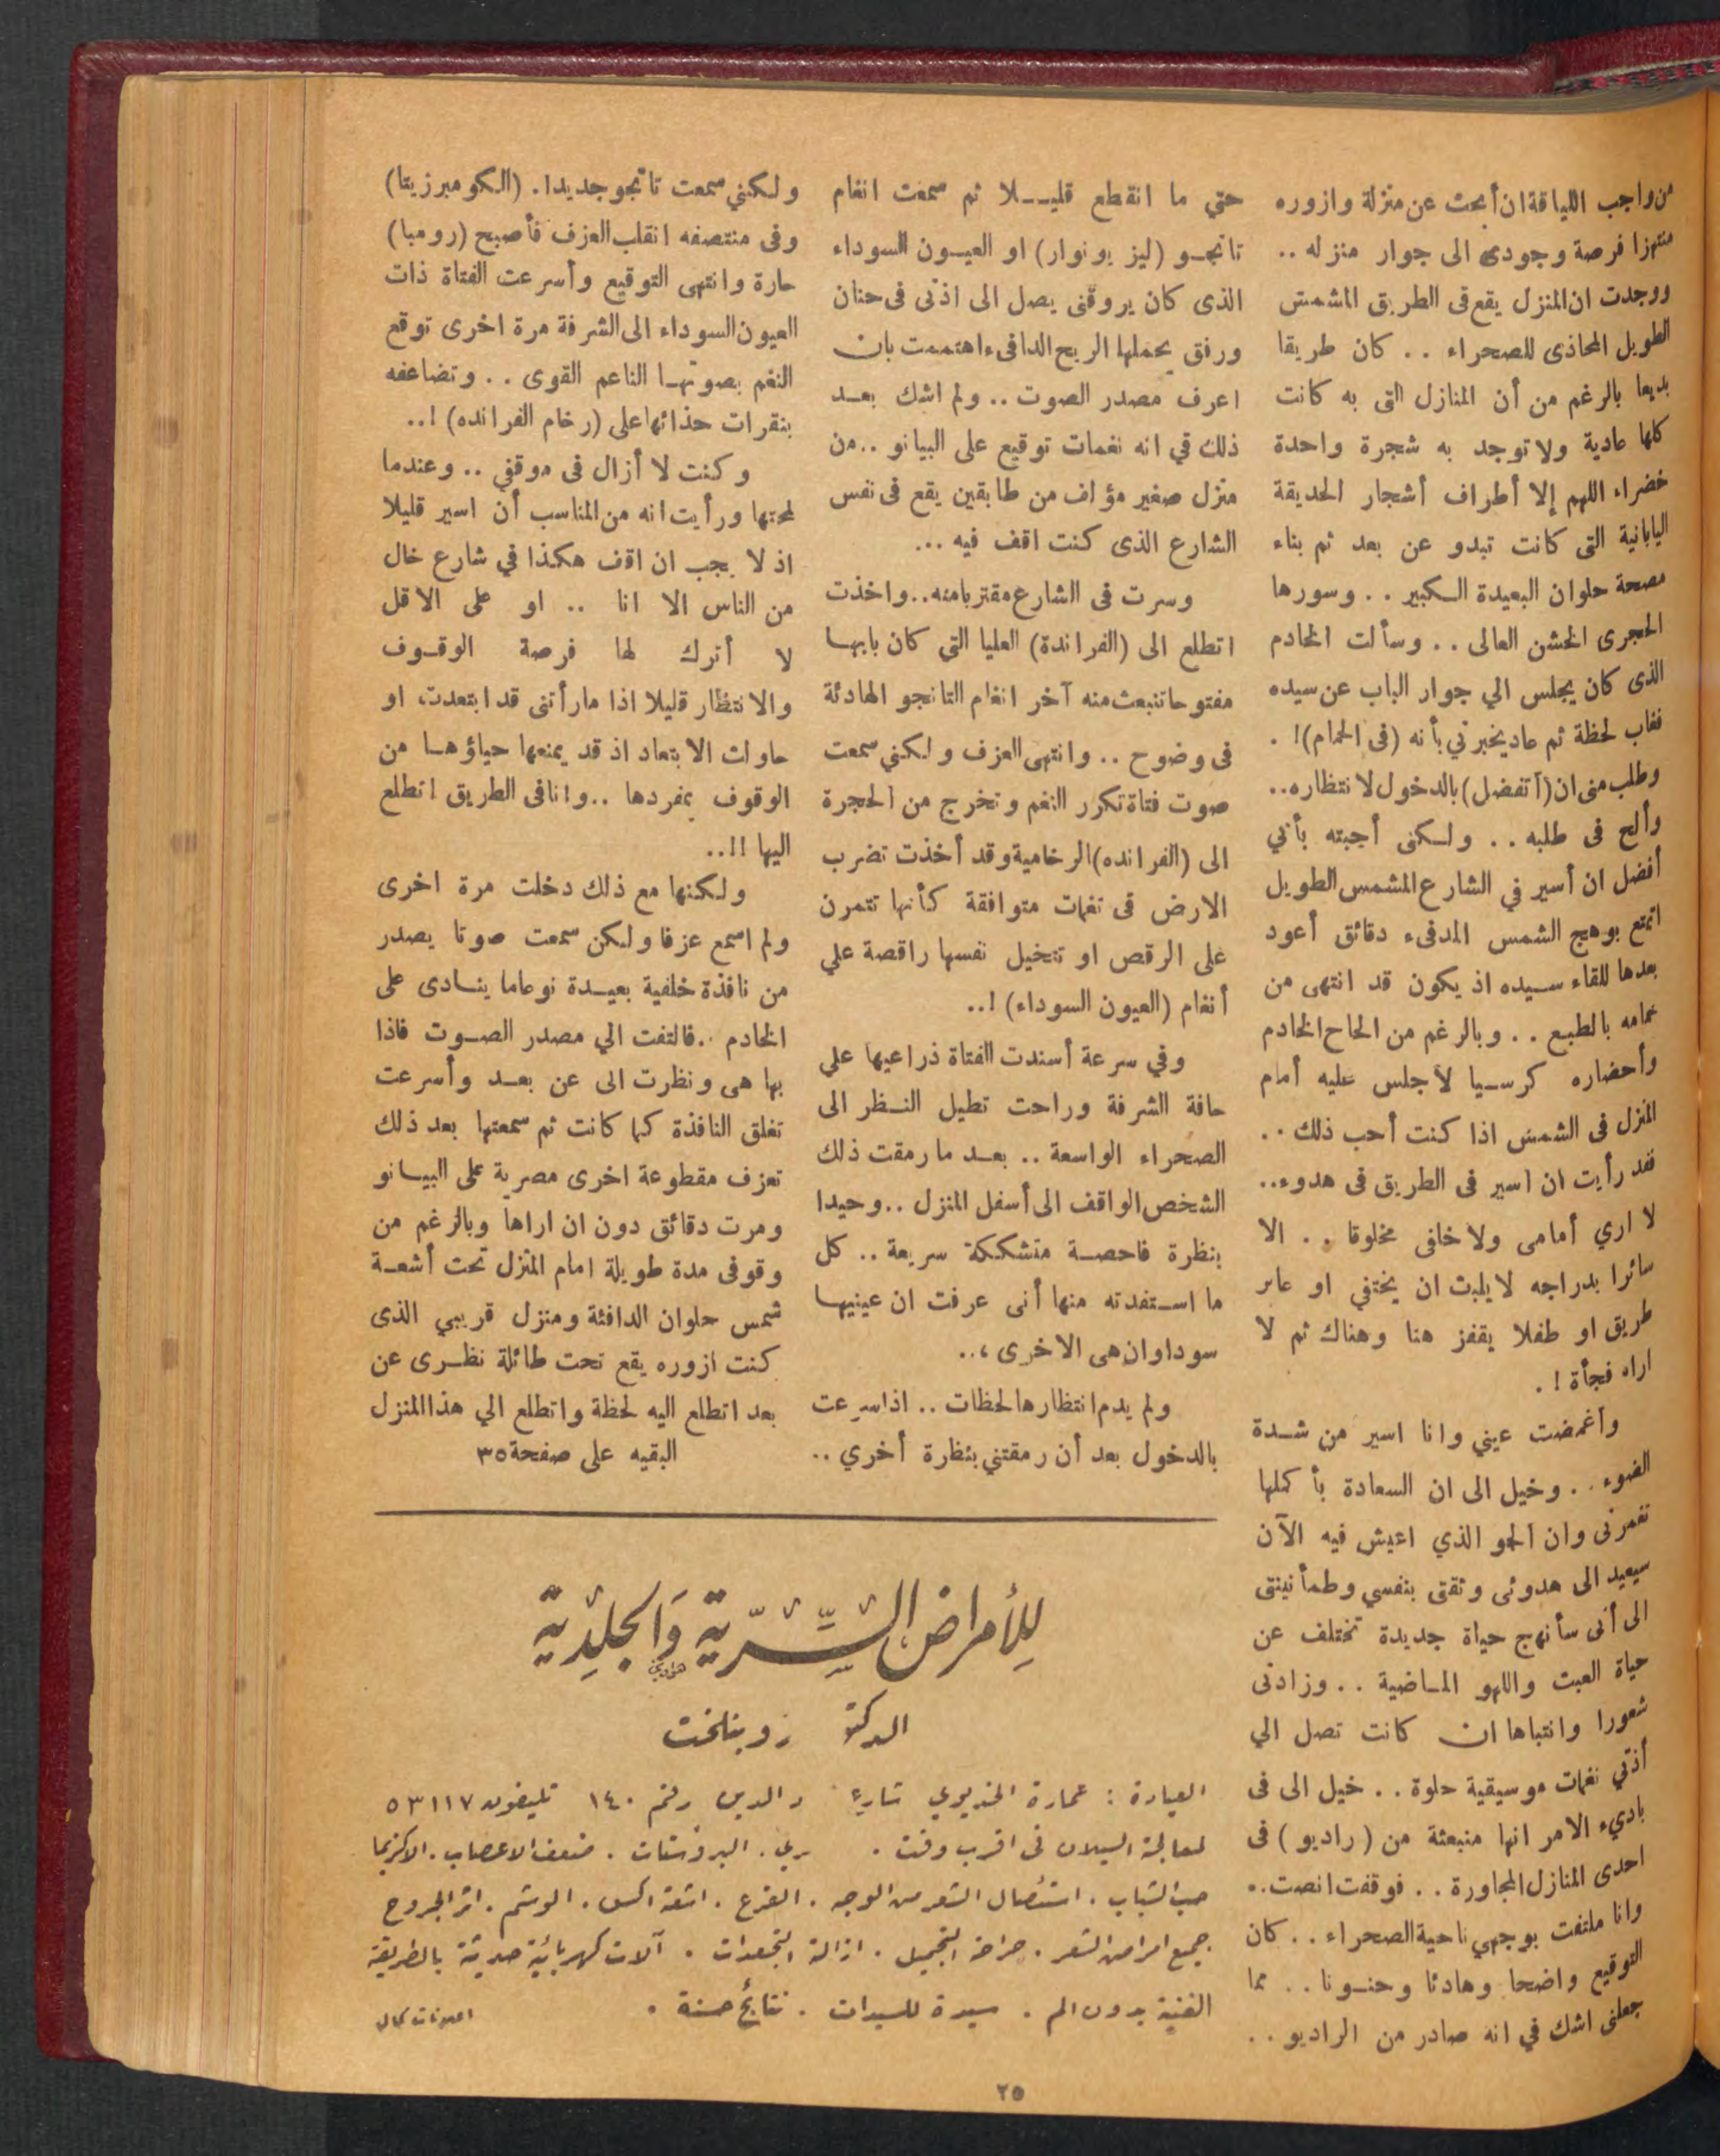 من واجب اللياقة ان أبحث عن منزلة وازوره
منتهزا فرصة وجودى الى جوار منزله ..
ووجدت ان المنزل يقع فى الطريق المشمش
الطويل المحاذى للصحراء .. كان طريقا
بديعا بالرغم من أن المنازل التى به كانت
كلها عادية ولا توجد به شجرة واحدة
خضراء اللهم إلا أطراف أشجار الحديقة
اليابانية التى كانت تبدو عن بعد ثم بناء
مصحة حلوان البعيدة الكبير .. وسورها
الحجرى الخشن العالى .. وسألت الخادم
الذى كان يجلس الي جوار الباب عن سيده
فغاب لحظة ثم عاد يخبرني بأنه (فى الحمام)! .
وطلب منى ان (أتفضل) بالدخول لانتظاره..
وألح فى طلبه .. ولكنى أجبته بأني
أفضل ان أسير في الشارع المشمس الطويل
اتمتع بوهج الشمس المدفىء دقائق أعود
بعدها للقاء سيده اذ يكون قد انتهى من
حمامه بالطبع .. وبالرغم من الحاح الخادم
وأحضاره كرسيا لأجلس عليه أمام
المنزل فى الشمس اذا كنت أحب ذلك ..
فقد رأيت ان اسير فى الطريق فى هدوء..
لا اري أمامى ولا خافى مخلوقا .. الا
سائرا بدراجه لايلبث ان يختفي او عابر
طريق او طفلا يقفز هنا وهناك ثم لا
اراه فجأة ! .
واغمضت عيني وانا اسير من شدة
الضوء .. وخيل الى ان السعادة بأكملها
تغمرنى وان الجو الذي اعيش فيه الآن
سيعيد الى هدوئى وثقتى بنفسي وطمأنينتى
الى أنى سأنهج حياة جديدة تختلف عن
حياة العبث واللهو الماضية .. وزادنى
شعورا وانتباها ان كانت تصل الي
أذني نغمات موسيقية حلوة .. خيل الى فى
باديء الامر انها منبعثة من (راديو) فى
احدى المنازل المجاورة .. فوقفت انصت..
وانا ملتفت بوجهي ناحية الصحراء .. كان
التوقيع واضحا وهادئا وحنونا .. مما
جعلنى اشك في انه صادر من الراديو ..
حتي ما انقطع قليلا ثم سمعت انغام
تانجو (ليز يونوار) او العيون السوداء
الذى كان يروقنى يصل الى اذنى فى حنان
ورفق يحملها الريح الدافىء اهتممت بان
اعرف مصدر الصوت .. ولم اشك بعد
ذلك في انه نغمات توقيع على البيانو ..من
منزل صغير مؤلف من طابقين يقع فى نفس
الشارع الذى كنت اقف فيه ...
وسرت فى الشارع مقتربا منه..واخذت
اتطلع الى (الفراندة) العليا التي كان بابها
مفتوحا تنبعث منه آخر انغام التانجو الهادئة
فى وضوح .. وانتهى العزف ولكني سمعت
صوت فتاة تكرر النغم وتخرج من الحجرة
الى (الفرانده) الرخامية وقد أخذت تضرب
الارض فى نغمات متوافقة كأنها تتمرن
على الرقص او تتخيل نفسها راقصة علي
أنغام (العيون السوداء) !..
وفي سرعة أسندت الفتاة ذراعيها علي
حافة الشرفة وراحت تطيل النظر الى
الصحراء الواسعة .. بعد ما رمقت ذلك
الشخص الواقف الى أسفل المنزل ..وحيدا
بنظرة فاحصة متشككة سريعة .. كل
ما استفدته منها أنى عرفت ان عينيها
سوداوان هى الاخرى ،..
ولم يدم انتظارها لحظات .. اذ اسرعت
بالدخول بعد أن رمقتني بنظرة أخري ..
ولكنني سمعت تانجو جديدا. (الكومبرزيتا)
وفى منتصفه انقلب العزف فأصبح (رومبا)
حارة وانتهى التوقيع وأسرعت الفتاة ذات
العيون السوداء الى الشرفة مرة اخرى توقع
النغم بصوتها الناعم القوى .. وتضاعفه
بنقرات حذائها على (رخام الفرانده) !..
وكنت لا أزال فى موقفي .. وعندما
لمحتها ورأيت انه من المناسب أن اسير قليلا
اذ لا يجب ان اقف هكذا في شارع خال
من الناس الا انا .. او على الاقل
لا أترك لها فرصة الوقوف
والانتظار قليلا اذا ما رأتنى قد ابتعدت او
حاولت الابتعاد اذ قد يمنعها حياؤها من
الوقوف بمفردها ..وانا فى الطريق اتطلع
اليها !!..
ولكنها مع ذلك دخلت مرة اخرى
ولم اسمع عزفا ولكن سمعت صوتا يصدر
من نافذة خلفية بعيدة نوعا ما ينادى على
الخادم ..فالتفت الي مصدر الصوت فاذا
بها هى ونظرت الى عن بعد وأسرعت
تغلق النافذة كما كانت ثم سمعتها بعد ذلك
تعزف مقطوعة اخرى مصرية على البيانو
ومرت دقائق دون ان اراها وبالرغم من
وقوفى مدة طويلة امام المنزل تحت أشعة
شمس حلوان الدافئة ومنزل قريبي الذى
كنت ازوره يقع تحت طائلة نظرى عن
بعد اتطلع اليه لحظة واتطلع الي هذا المنزل
البقيه على صفحة ٣٥
للأمراض السِّرّية وَالجلدِية
الدكتو روبنلخت
العيادة : عمارة الخديوي شارع الدين رقم ١٤٠ تليفون ٥٣١١٧
لمعالجة السيلان فى اقرب وقت . ري . البروستات . ضعف الاعصاب . الاكزيما
حب الشباب . استئصال الشعر من الوجه . القرع . اشعة اكس . الوشم . اثر الجروح
جميع امراض الشعر . جراحة التجميل . ازالة التجعدات . آلات كهربائية حديثة بالطريقة
الفنية بدون الم . سيدة للسيدات . نتائج حسنة .
٢٥